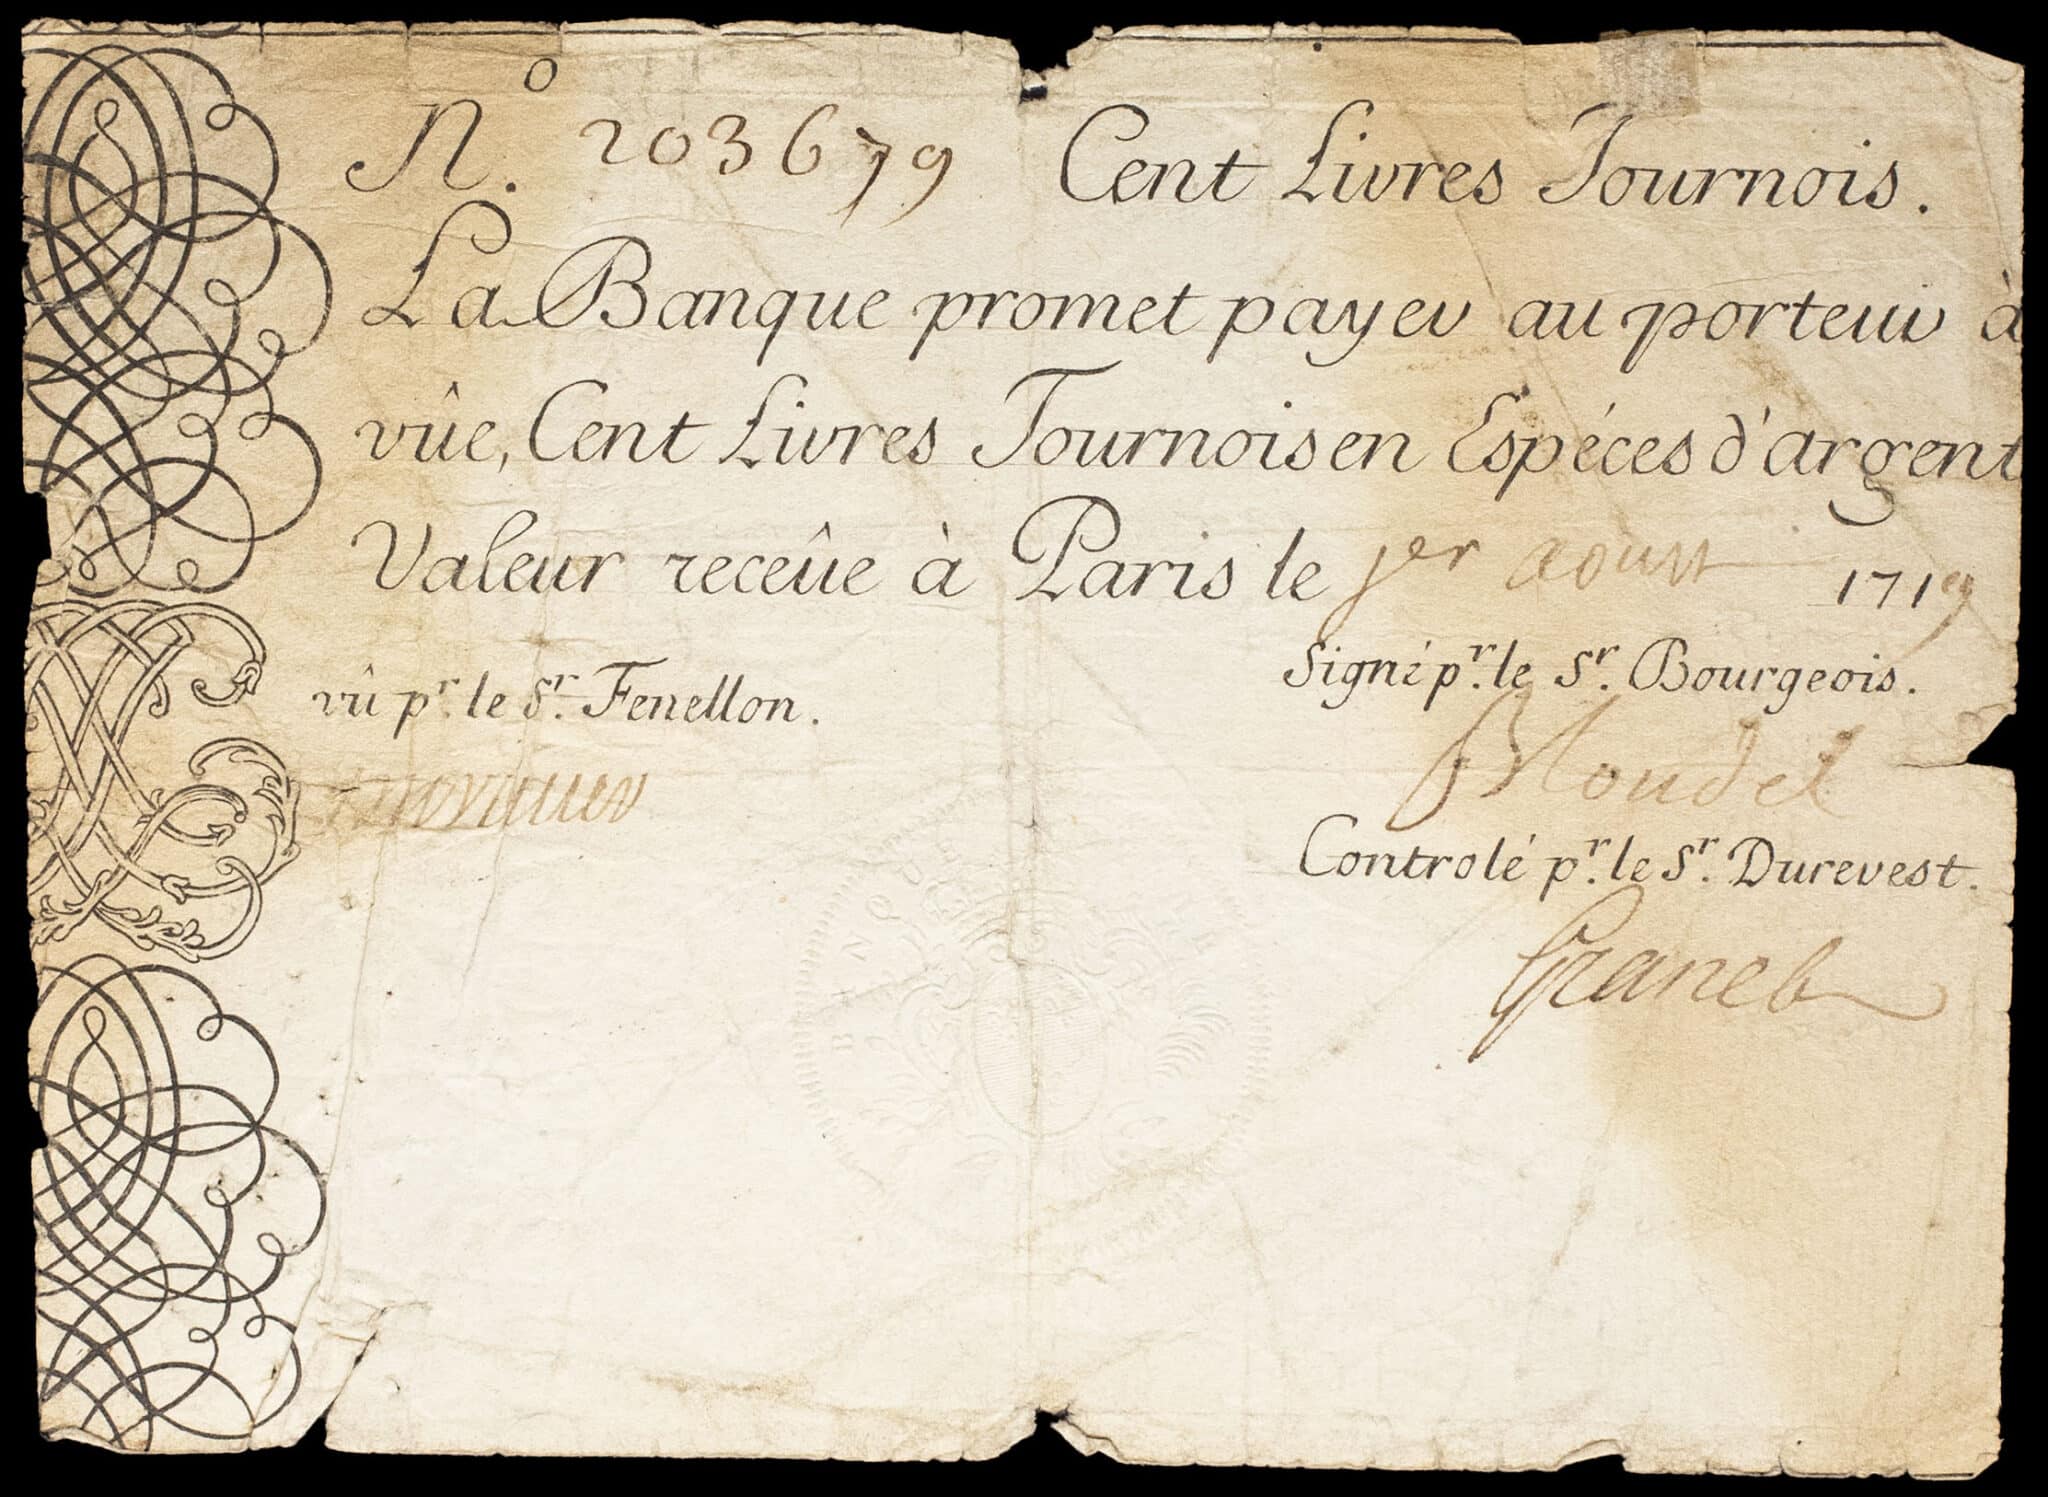 No. 203679 Cent Livres Tournois.
La Banque promet payer au porteur à
vûe, Cent Livres Tournois en Espéces d'argent
Valeur receüe à Paris le 1er aoust 1719
vû pr. le Sr. Fenellon.
Signé pr. le Sr. Bourgeois.
Blondel
Controlé pr. le Sr. Durevest.
Granet
BANQUE